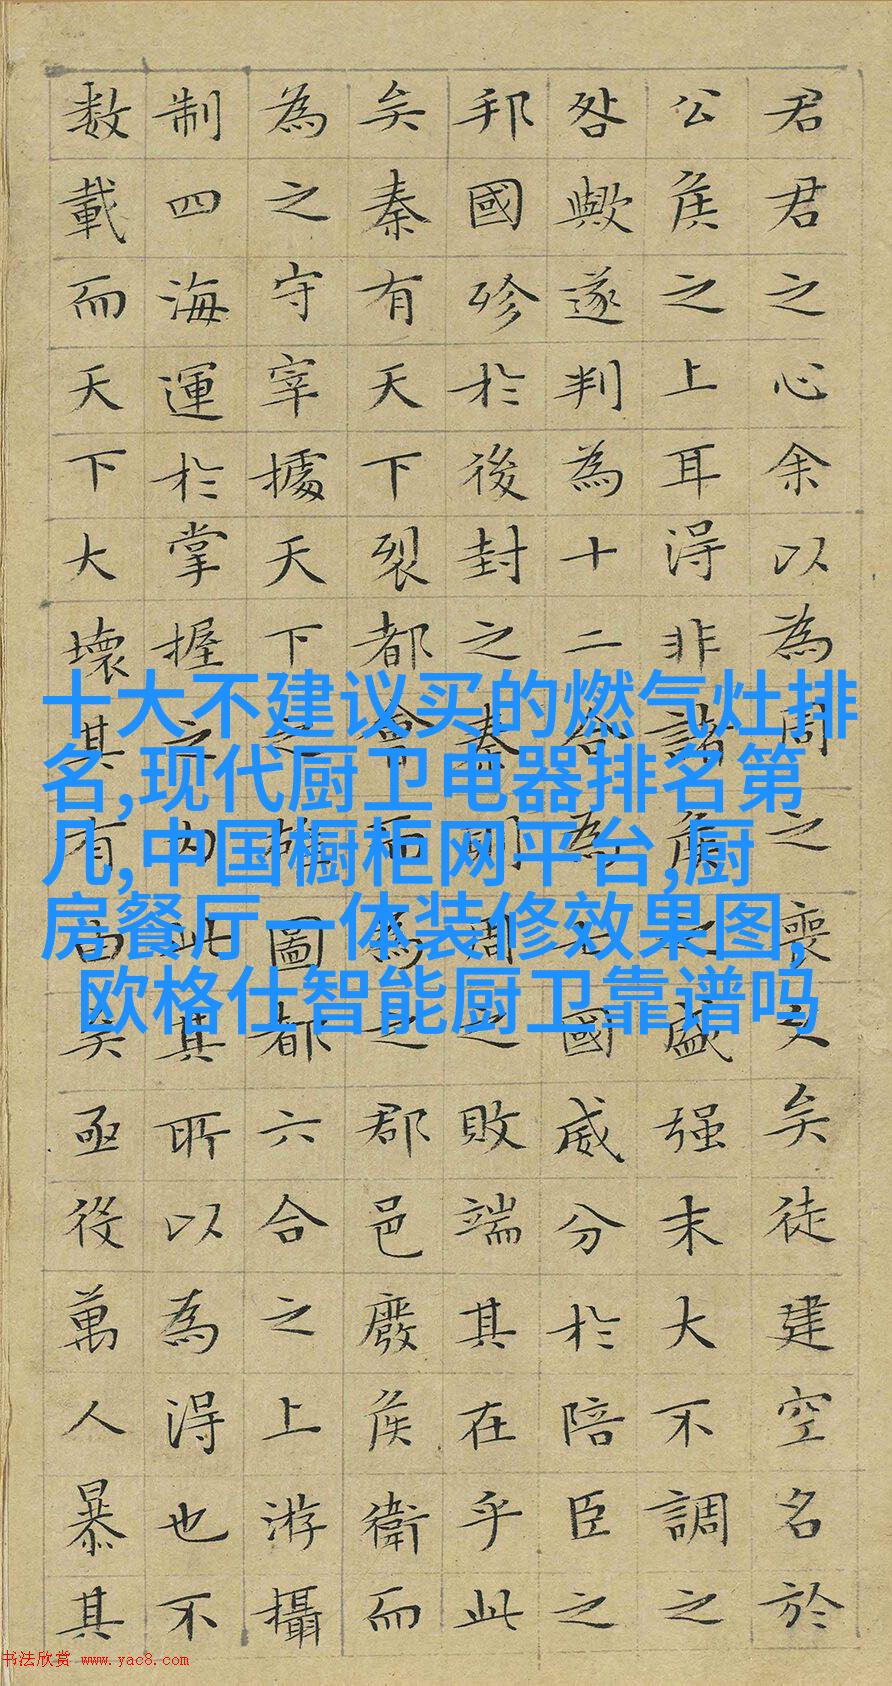 君君之心余以為周之喪久矣徒建空名於
公矦之上耳得非諸矦之盛强末大不調之
咎歟遂判為十二合為七國威分於陪臣之
邦國殄於後封之秦則周之敗端其在乎此
矣秦有天下裂都會而為之郡邑廢矦衛而
為之守宰據天下之雄圖都六合之上游攝
制四海運於掌握之内此其所以為得也不
数載而天下大壞其有由矣亟役萬人暴其
十大不建议买的燃气灶排
名,现代厨卫电器排名第
几,中国橱柜网平台,厨
房餐厅一体装修效果图,
欧格仕智能厨卫靠谱吗
书法欣赏 www.yac8.com